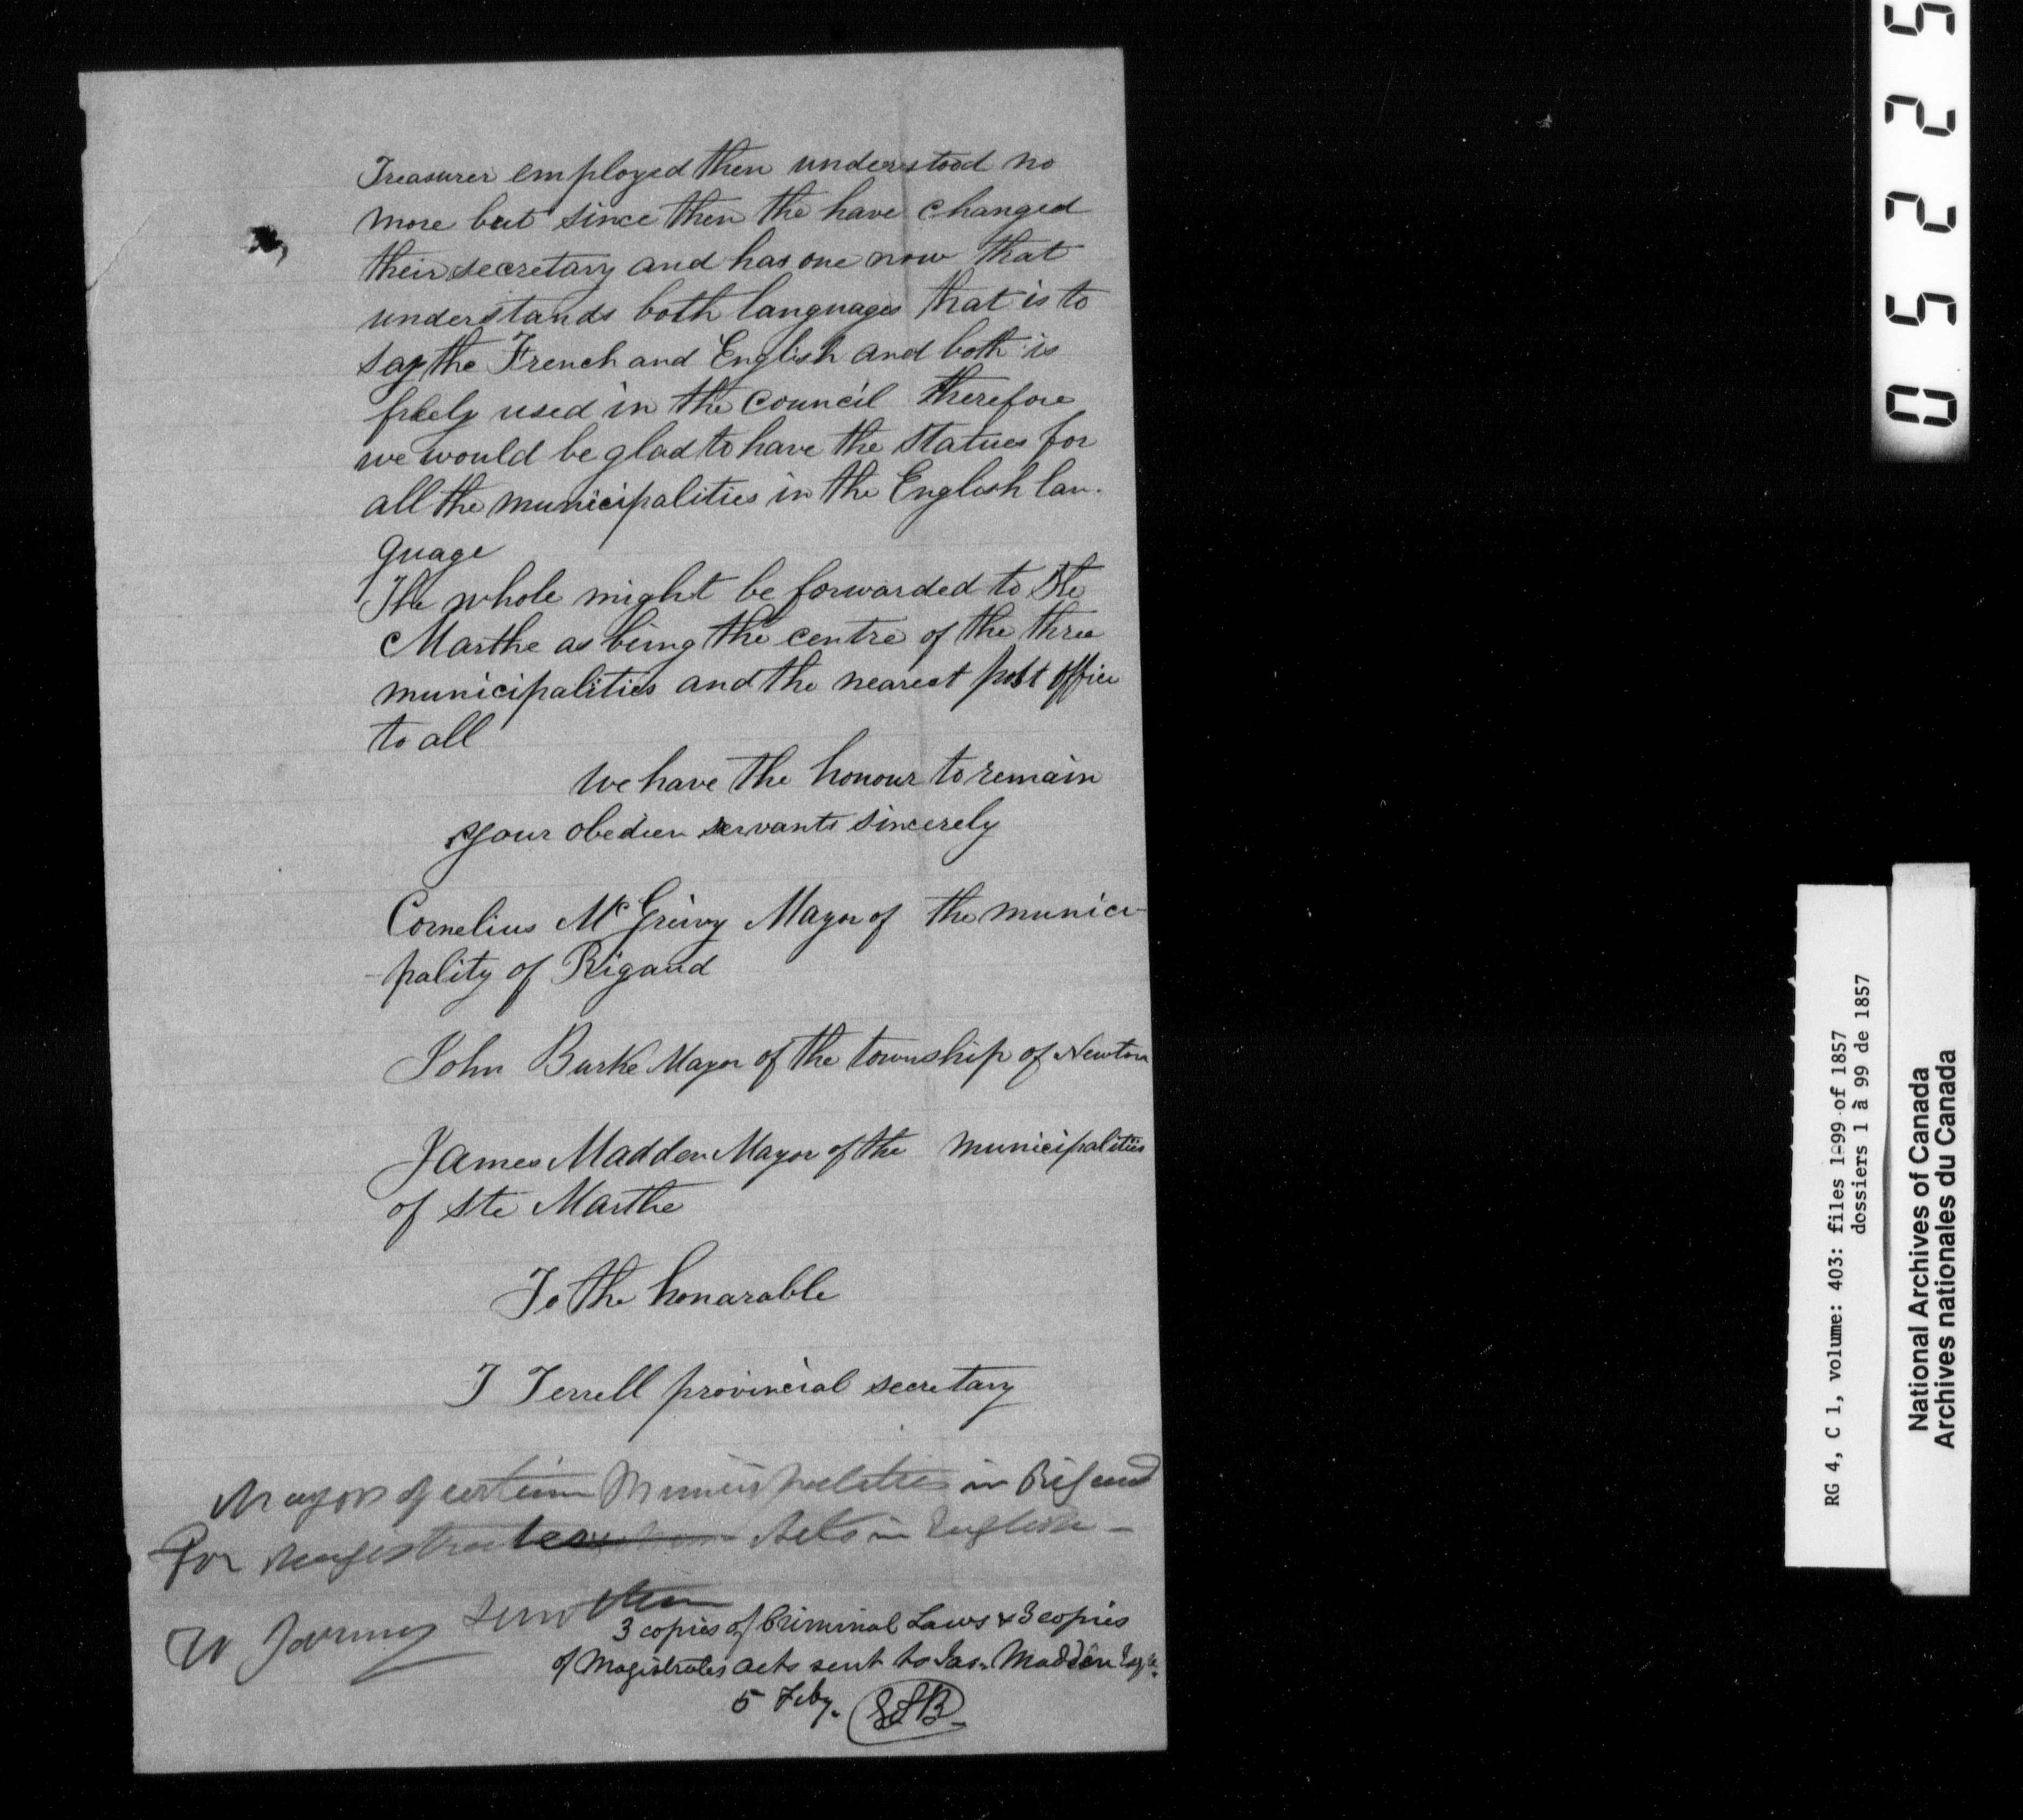 Treasurer employed then understood no
more but since then the have changed
their secretary and has one now that
understands both languages that is to
say the French and English and both is
freely used in the council therefore
we would be glad to have the statues for
all the municipalities in the English lan.
guage
The whole might be forwarded to Ste
Marthe as being the centre of the three
municipalities and the nearest post office
to all
We have the honour to remain
your obedien servants sincerely
Cornelius McGreivy Mayor of the munici-
-pality of Rigaud
John Burke Mayor of the township of Newton
James Madden Mayor of the municipalities
of Ste Marthe
To the honarable
T Terrell provincial secretary
Mayors of certain Municipalities in Rigaud
For Magistrates Acts in English -
3 copies of Criminal Laws & 3 copies
of Magistrates acts sent to Jas. Madden Esqre.
5 Feby.
05225
RG 4, C 1, volume: 403: files 1-99 of 1857
dossiers 1 à 99 de 1857
National Archives of Canada
Archives nationales du Canada